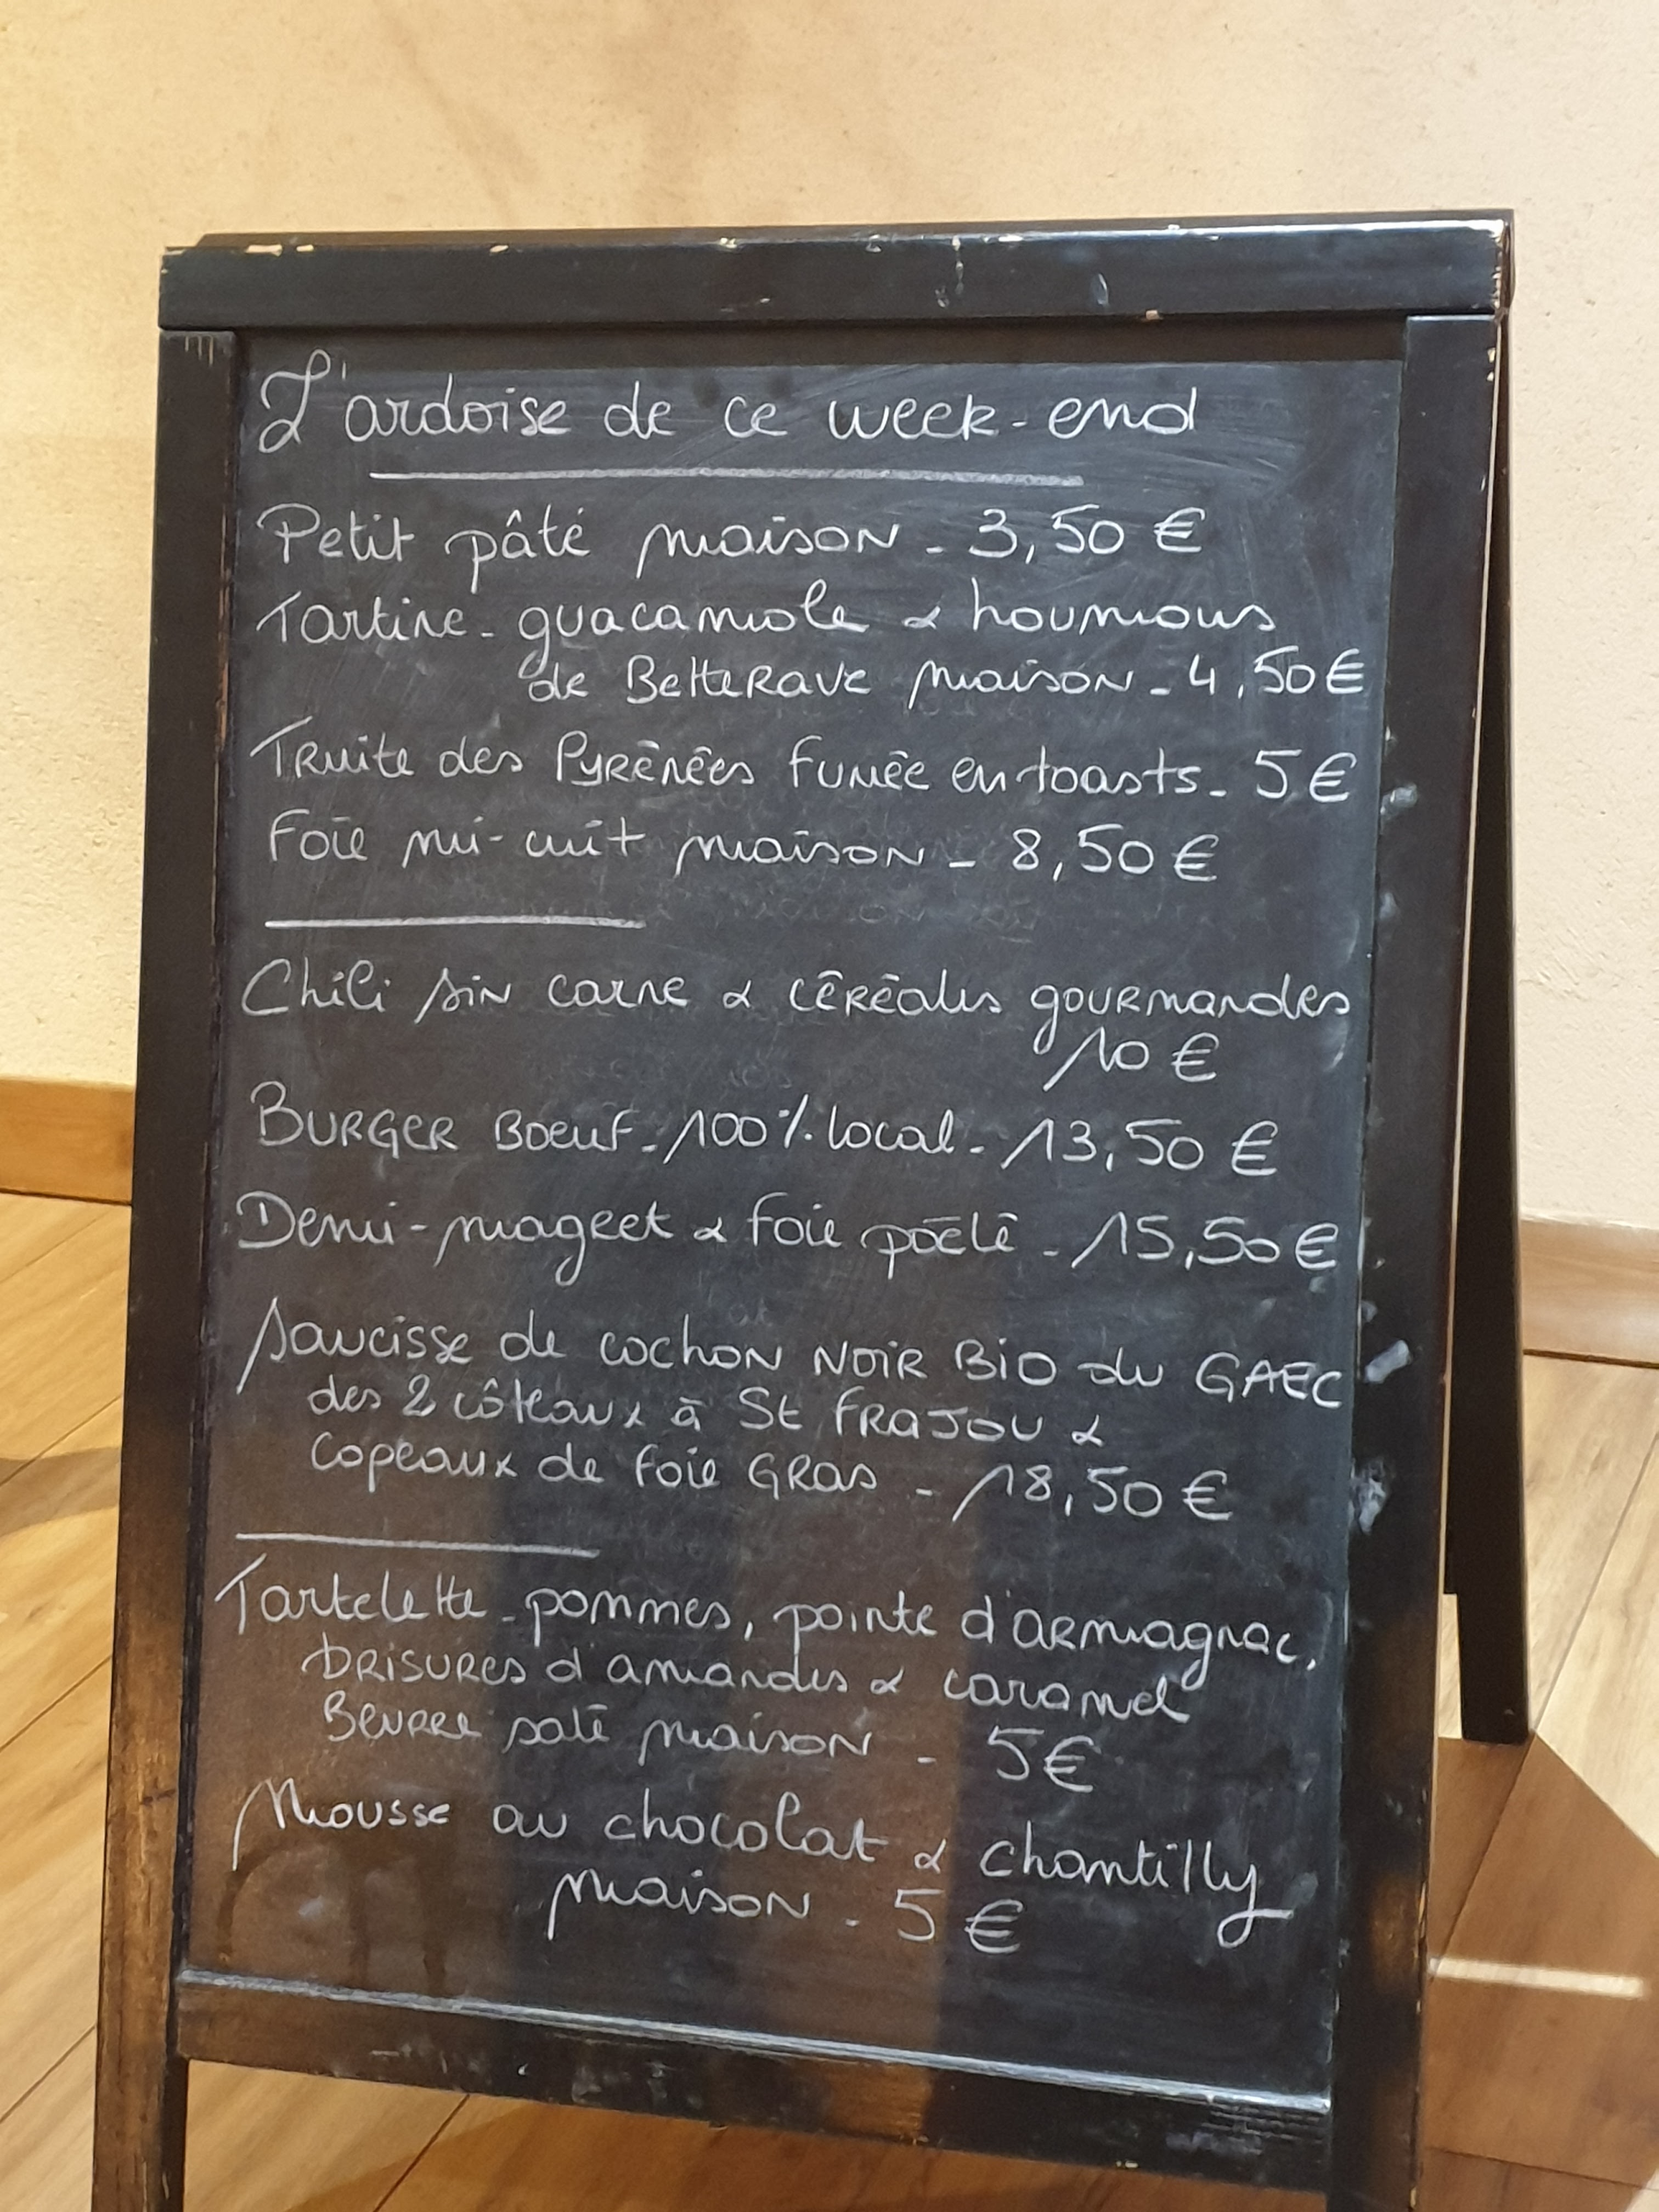 L'ardoise de ce week-end
Petit pâté maison - 3,50 €
Tartine - guacamole & houmous
de Betterave maison - 4,50 €
Truite des Pyrénées fumée en toasts - 5 €
Foie mi-cuit maison - 8,50 €
Chili sin carne & céréales gourmandes
10 €
BURGER BOEUF - 100% local - 13,50 €
Demi-magret & foie poêlé - 15,50 €
Saucisse de cochon noir Bio du GAEC
des 2 côteaux à St FRAJOU &
Copeaux de foie GRAS - 18,50 €
Tartelette - pommes, pointe d'armagnac,
brisures d'amandes & caramel
Beurre salé maison - 5 €
Mousse au chocolat & chantilly
maison - 5 €